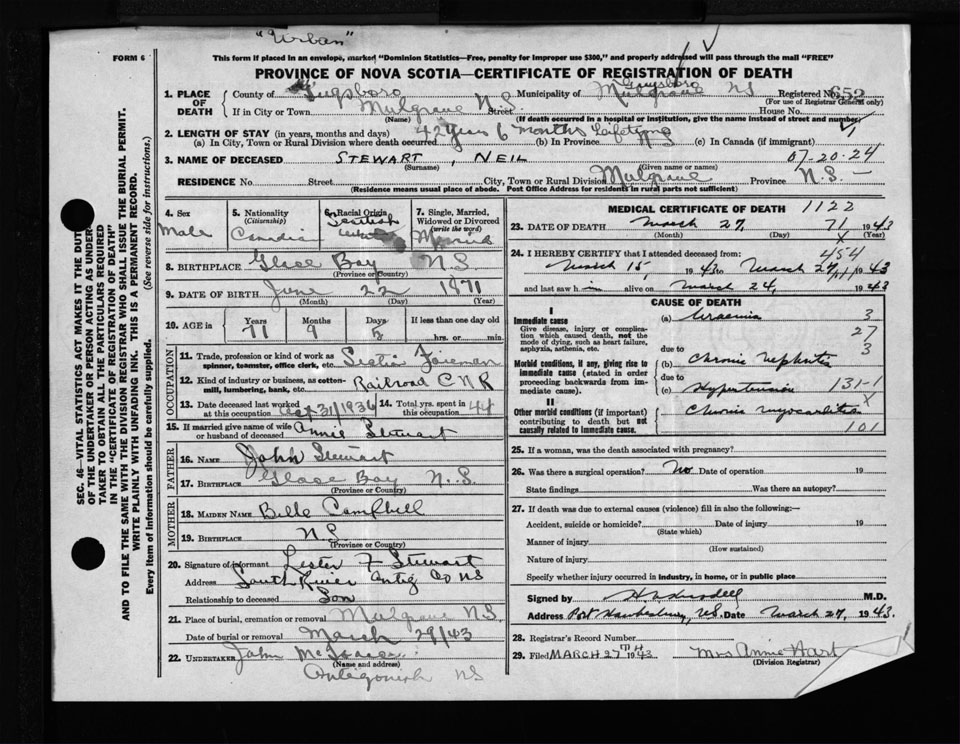 "Urban"
FORM 6
This form if placed in an envelope, marked "Dominion Statistics—Free, penalty for improper use $300," and properly addressed will pass through the mail "FREE"
PROVINCE OF NOVA SCOTIA—CERTIFICATE OF REGISTRATION OF DEATH
1. PLACE OF DEATH
County of Guysboro Municipality of Guysboro Mulgrave NS Registered No. 652
(For use of Registrar General only)
If in City or Town Mulgrave N.S. Street House No.
(Name) (If death occurred in a hospital or institution, give the name instead of street and number)
2. LENGTH OF STAY (in years, months and days)
(a) In City, Town or Rural Division where death occurred 42 years 6 months (b) In Province Lifetime NS (c) In Canada (if immigrant)
3. NAME OF DECEASED STEWART, NEIL 07-20-24
(Surname) (Given name or names)
RESIDENCE No. Street City, Town or Rural Division Mulgrave Province N.S.
(Residence means usual place of abode. Post Office Address for residents in rural parts not sufficient)
4. Sex
Male
5. Nationality
(Citizenship)
Canadian
6. Racial Origin
7. Single, Married, Widowed or Divorced
(write the word)
Married
8. BIRTHPLACE Glace Bay N.S.
(Province or Country)
9. DATE OF BIRTH June 22 1871
(Month) (Day) (Year)
10. AGE in Years Months Days If less than one day old
71 9 5 hrs. or min.
OCCUPATION
11. Trade, profession or kind of work as spinner, teamster, office clerk, etc. Foreman
12. Kind of industry or business, as cotton-mill, lumbering, bank, etc. Railroad C N R
13. Date deceased last worked at this occupation 31/1936
14. Total yrs. spent in this occupation 44
15. If married give name of wife or husband of deceased Annie Stewart
FATHER
16. NAME John Stewart
17. BIRTHPLACE Glace Bay N.S.
(Province or Country)
MOTHER
18. MAIDEN NAME Belle Campbell
19. BIRTHPLACE N.S.
(Province or Country)
20. Signature of informant Lester F Stewart
Address South River Antig Co NS
Relationship to deceased Son
21. Place of burial, cremation or removal Mulgrave NS.
Date of burial or removal March 29/43
22. UNDERTAKER John McIsaac
(Name and address)
Antigonish NS
MEDICAL CERTIFICATE OF DEATH 1122
23. DATE OF DEATH March 27, 71 1943
(Month) (Day) (Year)
24. I HEREBY CERTIFY that I attended deceased from: 454
March 15 1943 to March 27 1943
and last saw him alive on March 24, 1943
CAUSE OF DEATH
I
Immediate cause
Give disease, injury or complication which caused death, not the mode of dying, such as heart failure, asphyxia, asthenia, etc.
(a) Uraemia 3
27
due to 3
Morbid conditions, if any, giving rise to immediate cause (stated in order proceeding backwards from immediate cause).
(b) Chronic Nephritis
due to
(c) Hypertension 131-1
II X
Other morbid conditions (if important) contributing to death but not causally related to immediate cause.
Chronic myocarditis
101
25. If a woman, was the death associated with pregnancy?
26. Was there a surgical operation? No Date of operation 19
State findings Was there an autopsy?
27. If death was due to external causes (violence) fill in also the following:—
Accident, suicide or homicide? Date of injury 19
(State which)
Manner of injury
(How sustained)
Nature of injury
Specify whether injury occurred in industry, in home, or in public place
Signed by M.D.
Address Port Hawkesbury, N.S. Date March 27, 1943.
28. Registrar's Record Number
29. Filed MARCH 27TH 1943 Mrs Annie Hart
(Division Registrar)
SEC. 46—VITAL STATISTICS ACT MAKES IT THE DUTY
OF THE UNDERTAKER OR PERSON ACTING AS UNDERTAKER
TO OBTAIN ALL THE PARTICULARS REQUIRED
IN THE "CERTIFICATE OF REGISTRATION OF DEATH"
AND TO FILE THE SAME WITH THE DIVISION REGISTRAR WHO SHALL ISSUE THE BURIAL PERMIT.
WRITE PLAINLY WITH UNFADING INK. THIS IS A PERMANENT RECORD.
Every item of information should be carefully supplied. (See reverse side for instructions.)